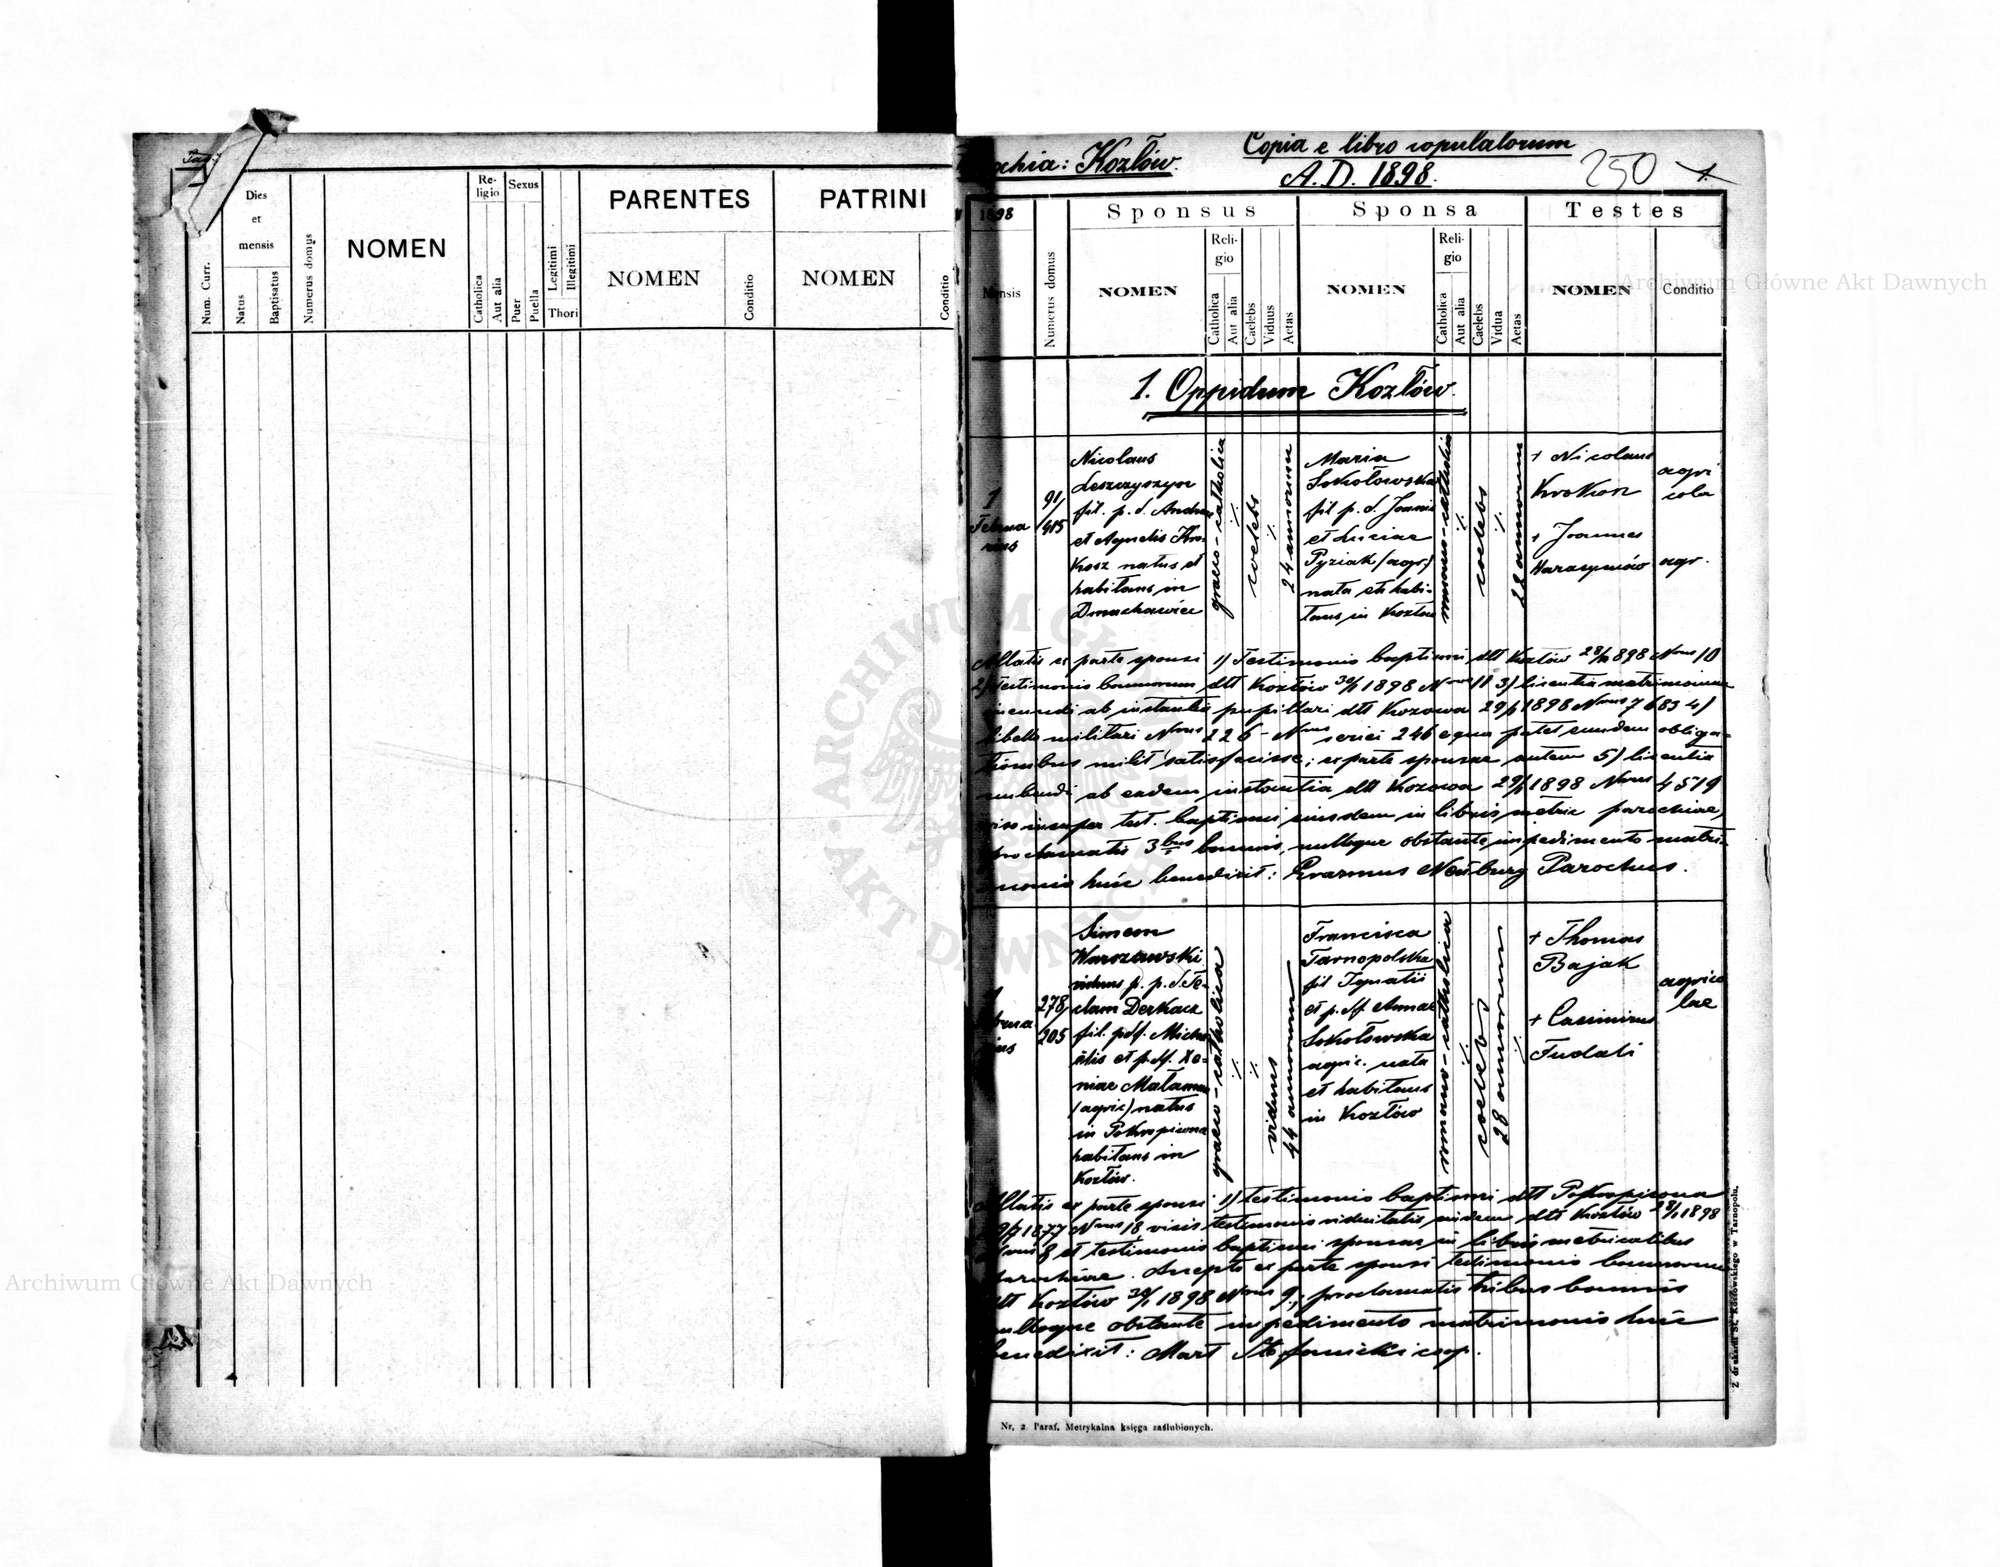 Pag.
Num. Curr.
Dies
et
mensis
Natus
Baptisatus
Numerus domus
NOMEN
Re-
ligio
Catholica
Aut alia
Sexus
Puer
Puella
Legitimi
Illegitimi
Thori
PARENTES
NOMEN
Conditio
PATRINI
NOMEN
Conditio
Kozłów.
Copia e libro copulatorum
A. D. 1898.
250
1.
1898
Mensis
Numerus domus
Sponsus
NOMEN
Reli-
gio
Catholica
Aut alia
Caelebs
Viduus
Aetas
Sponsa
NOMEN
Reli-
gio
Catholica
Aut alia
Caelebs
Vidua
Aetas
Testes
NOMEN
Conditio
1. Oppidum Kozłów.
1
Februa
rius
91/
415
Nicolaus
Leszczyszyn
fil. p. d. Andreae
et Agnetis Kro-
kosz natus et
habitans in
Dmuchawiec
graeco-catholica
·/·
coelebs
·/·
24 annorum
Maria
Sokołowska
fil p. d. Joannis
et Luciae
Pyziak (agr.)
nata et habi-
tans in Kozłów
romano-catholica
·/·
coelebs
·/·
22 annorum
+ Nicolaus
Krokosz
+ Joannes
Harasymów
agri
cola
agr.
Allatis ex parte sponsi 1) Testimonio baptismi dtt Kozłów 1898 Nrus 10
2) Testimonio bannorum dtt Kozłów 30/1 1898 Nrus 11 3) licentia matrimonium
ineundi ab instantia pupillari dtt Kozowa 29/1 1898 Nrus 7683 4)
libello militari Nrus 226 - Nrus seriei 246 e quo patet eundem obliga-
tionibus milit satisfecisse; ex parte sponsae autem 5) licentia
nubendi ab eadem instantia dtt Kozowa 29/1 1898 Nrus 4519
viso insuper test. baptismi eiusdem in libris metric parochiae,
proclamatis 3bus bannis, nulloque obstante impedimento matri-
monio huic benedixit: Erazmus Neuburg Parochus.
278/
205
Simeon
Warszawski
viduus p. p. d. Te-
clam Derkacz
fil. pdf. Micha-
elis et p. df. Xe-
niae Małamaz
(agric) natus
in Pokropiwna
habitans in
Kozłów.
graeco-catholica
·/·
·/·
viduus
44 annorum
Francisca
Tarnopolska
fil Ignatii
et p. df Annae
Sokołowska
agric. nata
et habitans
in Kozłów
romano-catholica
·/·
coelebs
28 annorum
·/·
+ Thomas
Bajak
+ Casimirus
Tudali
agrico
lae
Allatis ex parte sponsi 1) testimonio baptismi dtt Pokropiwna
1877 Nrus 18 visis testimonio viduitatis eiusdem dtt Kozłów 28/1 1898
Nrus 8 et testimonio baptismi sponsae in libris metricalibus
parochiae. Accepto ex parte sponsi testimonio bannorum
dtt Kozłów 30/1 1898 Nrus 9, proclamatis tribus bannis
nulloque obstante impedimento matrimonio huic
benedixit: Mart Stefanicki coop.
Nr. 2 Paraf. Metrykalna księga zaślubionych.
Z drukarni St. Kossowskiego w Tarnopolu.
Archiwum Główne Akt Dawnych
Archiwum Główne Akt Dawnych
ARCHIWUM GŁÓWNE
AKT DAWNYCH